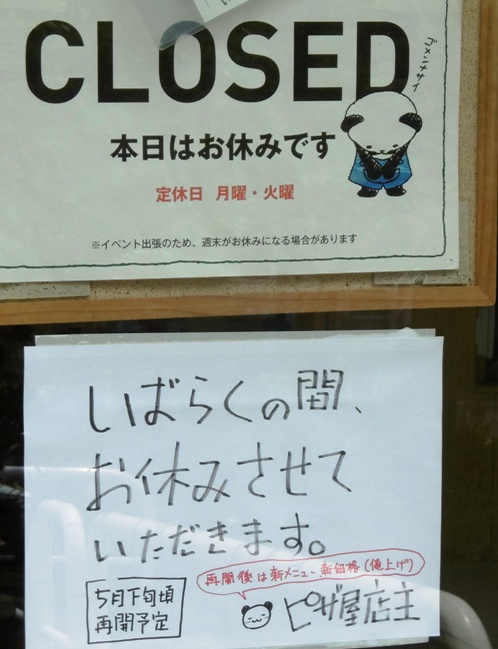 CLOSED
ゴメンナサイ
本日はお休みです
定休日 月曜・火曜
※イベント出張のため、週末がお休みになる場合があります
しばらくの間、
お休みさせて
いただきます。
再開後は新メニュー 新価格(値上げ)
5月下旬頃
再開予定
ピザ屋店主